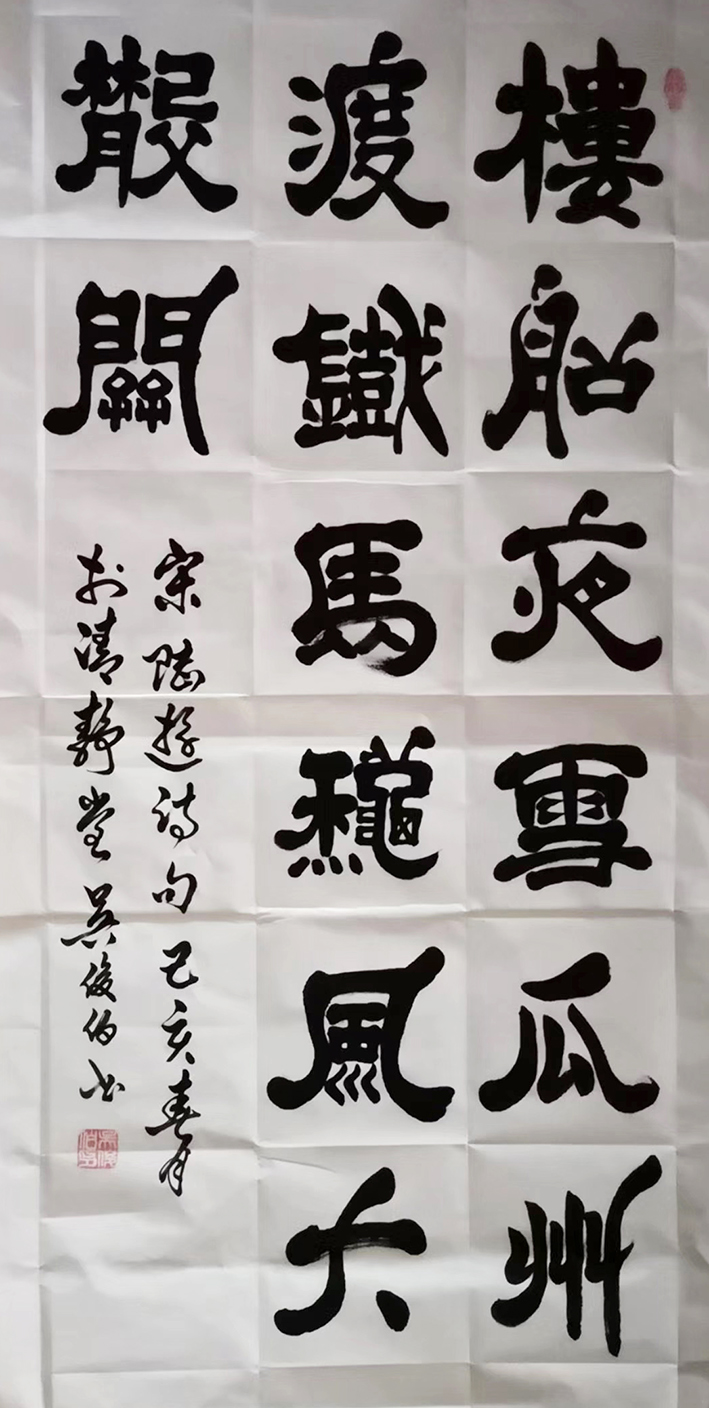 樓船夜雪瓜州
渡鐵馬龝風大
散關
宋陸遊詩句己亥春月
於清靜堂吳俊伯书